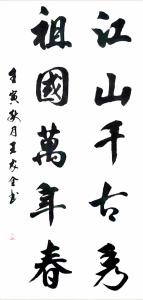 江山千古秀
祖國萬年春
壬寅秋月王友全書